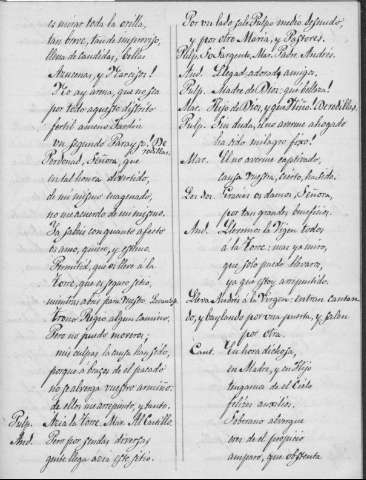 es mirar toda la orilla,
tan breve, tan de improviso,
llena de candidas, bellas
Azucenas, y Narcisos!
No ay arma, que no sea
por todo aqueste distrito
fertil ameno Jardin
un segundo Parayso! De rodillas.
Perdonad, Señora, que
en tal hora divertido,
de mi mismo enagenado,
no me acuerdo de mi mismo.
Ya sabeis con quanto afecto
os amo, quiero, y estimo.
Permitid, que os lleve à la
Torre, que es seguro sitio,
mientras abre para vuestro
trono Regio algun camino.
Pero no puedo moveros;
mis culpas la causa han sido,
porque à brazos del pecado
no se alverga vuestro armiño:
de ellos me arrepiento, y tanto.
Pulp. Azia la Torre. Mar. Al Castillo.
And. Pero por sendas diversas
gente llega azia este sitio.
Por un lado sale Pulpo medio desnudo,
y por otro Maria, y Pastores.
Pulp. Sò Sargento. Mar. Padre Andrès.
And. Llegad, adorad, amigos.
Pulp. Madre de Dios, què bellaza!
Mar. Hijo de Dios, y què Niño! De rodillas.
Pulp. Sin duda, el no averme ahogado
ha sido milagro fixo!
Mar. El no averme captivado,
causa vuestra, cierto, ha sido.
Los dos. Gracias os damos, Señora,
por tan grandes beneficios.
And. Llevemos la Virgen todos
à la Torre: mas ya miro,
que, solo puedo llevaros,
ya que estoy arrepentido.
Lleva Andrès à la Virgen: entran cantan-
do, y baylando por una puerta, y salen
por otra.
Cant. En hora dichosa,
en Madre, y en Hijo
tengamos de el Cielo
felices auxilios.
Soberano alvergue
sois de el propicio
amparo, que obstenta